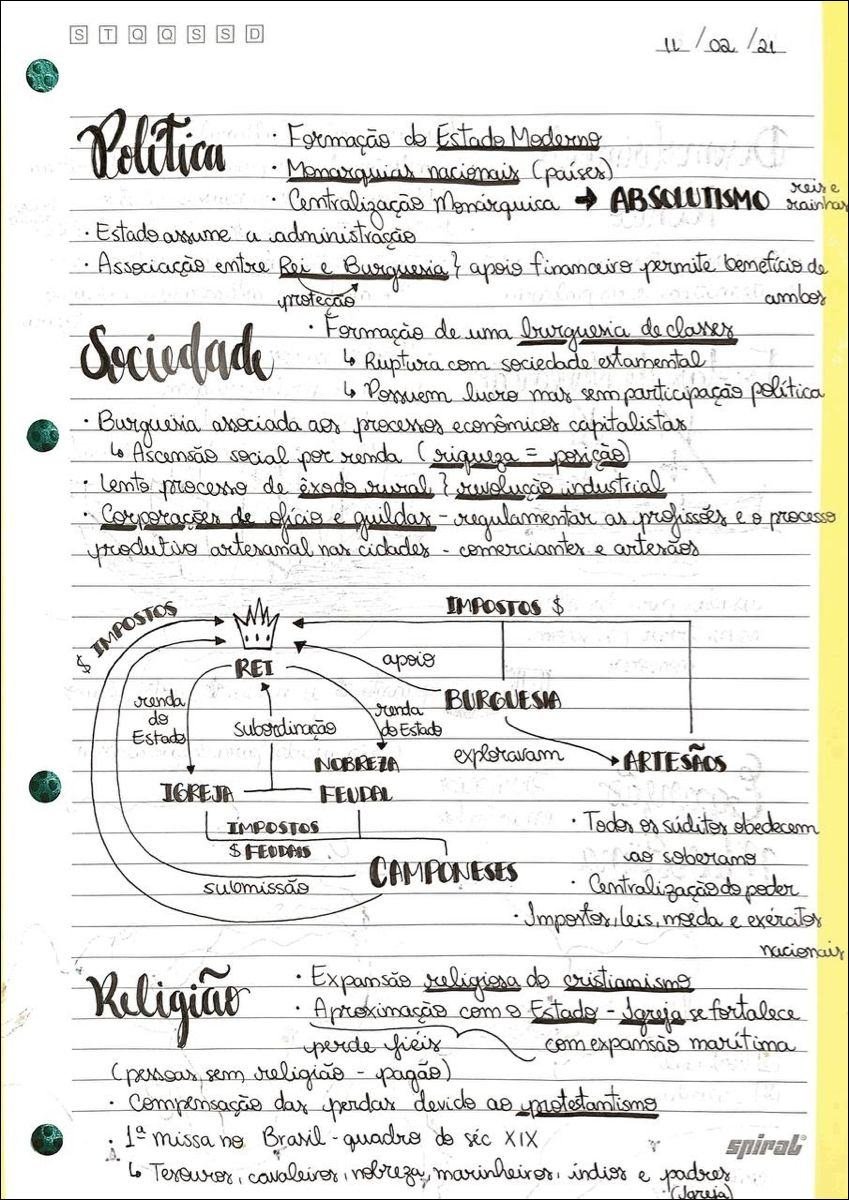 S T Q Q S S D
11 / 02 / 21
Política
· Formação do Estado Moderno
· Monarquias nacionais (países)
· Centralização Monárquica → ABSOLUTISMO reis e rainhas
· Estado assume a administração
· Associação entre Rei e Burguesia } apoio financeiro permite benefício de
proteção
ambos
Sociedade
· Formação de uma burguesia de classes
↳ Ruptura com sociedade estamental
↳ Possuem lucro mas sem participação política
· Burguesia associada aos processos econômicos capitalistas
↳ Ascensão social por renda (riqueza = posição)
· Lento processo de êxodo rural } revolução industrial
· Corporações de ofício e guildas - regulamentar as profissões e o processo
produtivo artesanal nas cidades - comerciantes e artesãos
$ IMPOSTOS
IMPOSTOS $
REI
apoio
BURGUESIA
renda
do
Estado
subordinação
renda
do Estado
exploravam
ARTESÃOS
NOBREZA
IGREJA
FEUDAL
IMPOSTOS
$ FEUDAIS
CAMPONESES
submissão
· Todos os súditos obedecem
ao soberano
· Centralização do poder
· Impostos, leis, moeda e exércitos
nacionais
Religião
· Expansão religiosa do cristianismo
· Aproximação com o Estado - Igreja se fortalece
perde fiéis
com expansão marítima
(pessoas sem religião - pagão)
· Compensação das perdas devido ao protestantismo
· 1ª missa no Brasil - quadro do séc XIX
spiral®
↳ Tesouros, cavaleiros, nobreza, marinheiros, índios e padres
(Igreja)